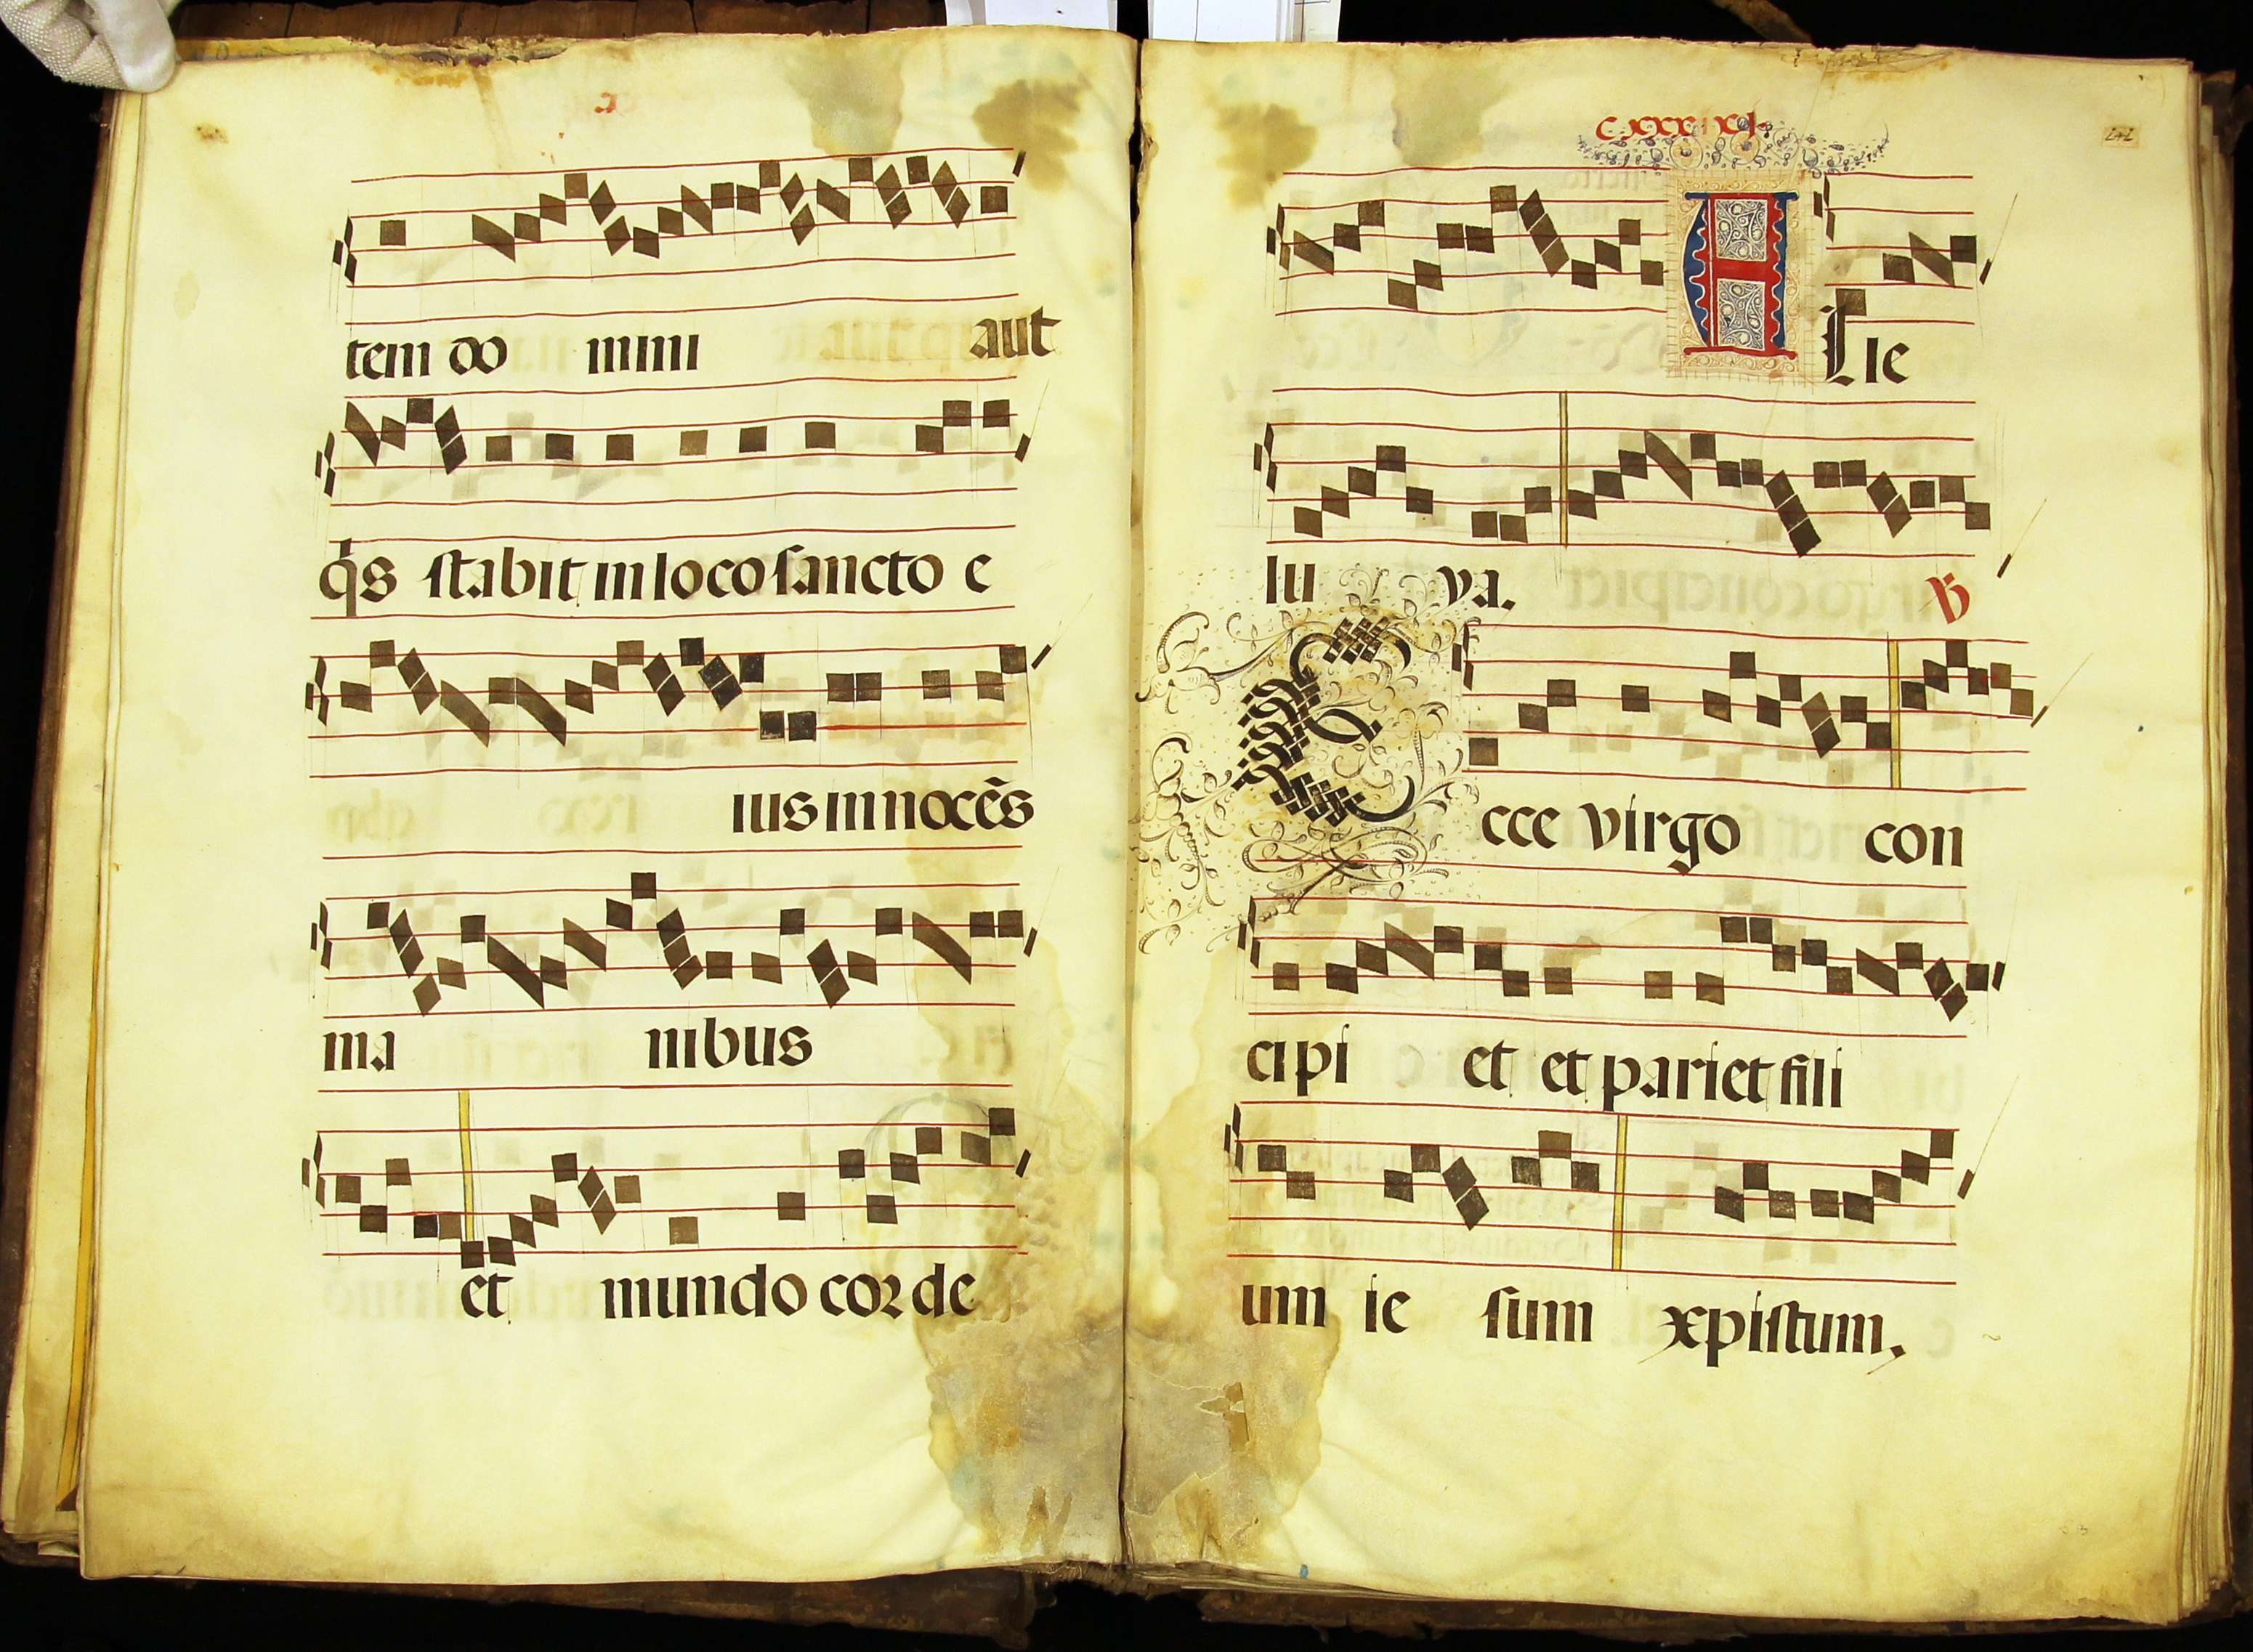 tem do mini aut
q̄s stabit in loco sancto e
ius innocẽs
ma nibus
et mundo corde
242
A Lle
lu ya. ℣
Ecce virgo con
cipi et et pariet fili
um ie sum xpistum.